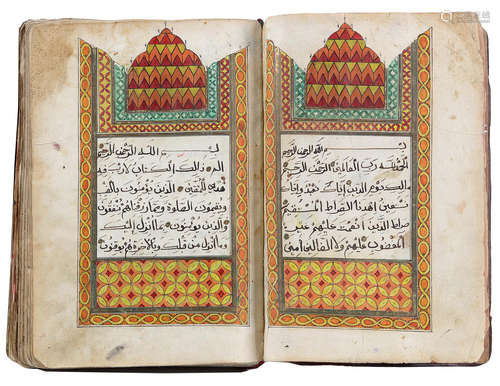 بسم الله الرحمن الرحيم
الحمد لله رب العالمين الرحمن الرحيم
ملك يوم الدين إياك نعبد وإياك
نستعين اهدنا الصراط المستقيم
صراط الذين أنعمت عليهم غير
المغضوب عليهم ولا الضالين امين
بسم الله الرحمن الرحيم
الم ذلك الكتاب لا ريب فيه
هدى للمتقين الذين يؤمنون بالغيب
ويقيمون الصلوة ومما رزقناهم ينفقون
والذين يؤمنون بما أنزل إليك
وما أنزل من قبلك وبالآخرة هم يوقنون